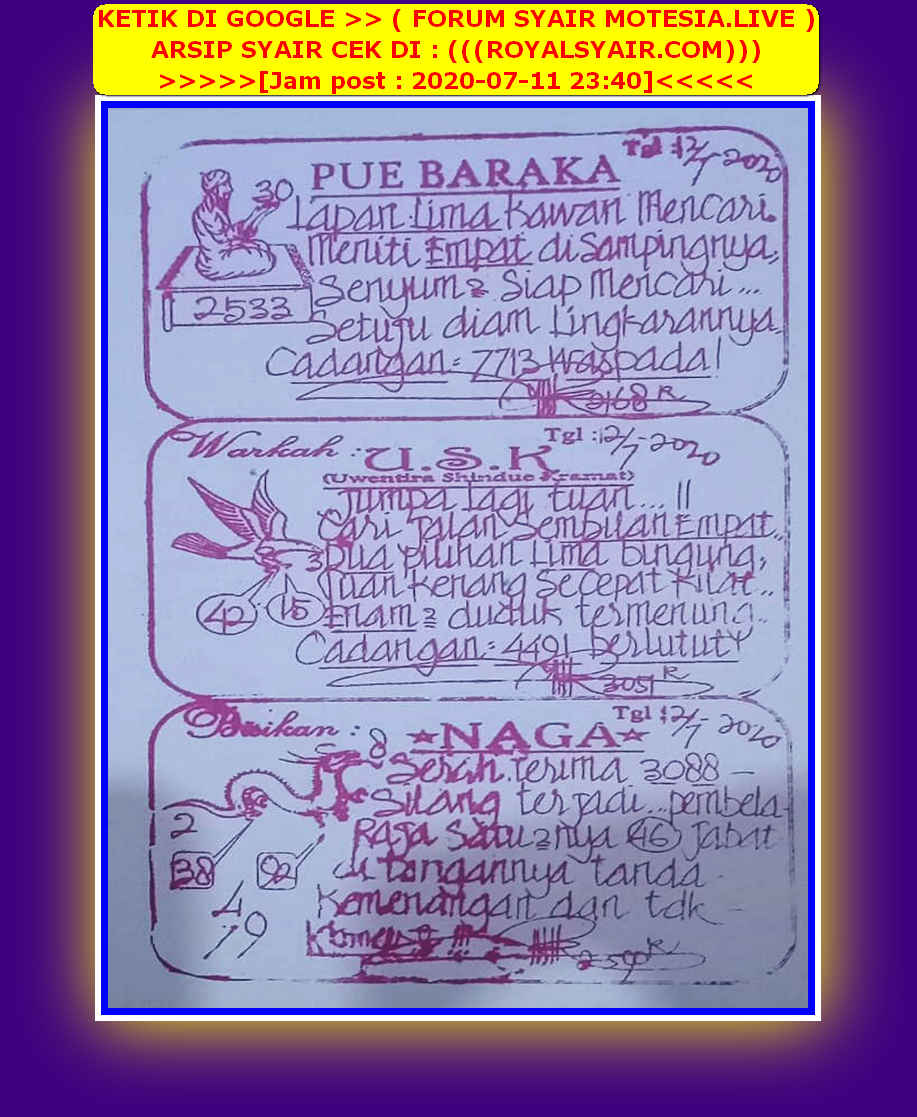 KETIK DI GOOGLE >> ( FORUM SYAIR MOTESIA.LIVE )
ARSIP SYAIR CEK DI : (((ROYALSYAIR.COM)))
>>>>>[Jam post : 2020-07-11 23:40]<<<<<
Tgl : 12/7-2020
PUE BARAKA
30
Lapan Lima Kawan Mencari.
Meniti Empat disampingnya,
2533
Senyum2 Siap Mencari...
Setuju diam Lingkarannya
Cadangan: 7713 Waspada!
3168 R
Warkah : U.S.K
Tgl : 12/7-2020
(Uwentira Shindue Kramat)
Jumpa lagi tuan...!!
Cari Jalan Sembilan Empat..
2 3
Dua pilihan Lima bingung,
Tuan Kenang Secepat Kilat..
42 15
Enam2 duduk termenung..
Cadangan: 4491 berlutut
3051 R
Bisikan : 8 ★NAGA★
Tgl : 12/7-2020
Serah terima 3088 -
Silang terjadi...pembela-
2
Raja Satu2nya 46 Jabat
38 92
di tangannya tanda
Kemenangan dan tdk -
4
79
2590 R